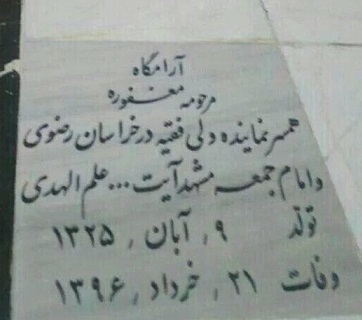 آرامگاه
مرحومه مغفوره
همسر نماینده ولی فقیه در خراسان رضوی
و امام جمعه مشهد آیت ... علم الهدی
تولد ۹ , آبان , ۱۳۲۵
وفات ۲۱ , خرداد , ۱۳۹۶